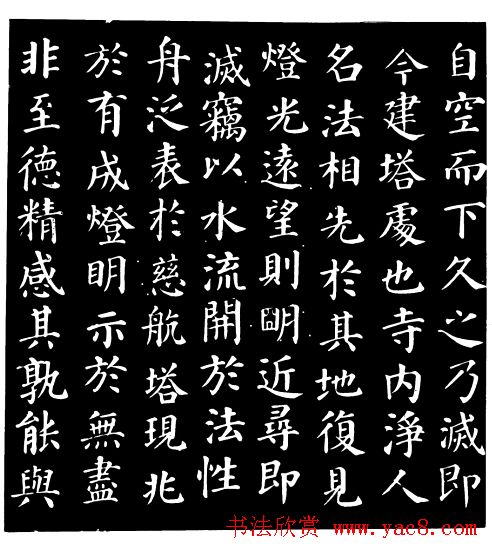 自空而下久之乃滅即
今建塔處也寺内淨人
名法相先於其地復見
燈光遠望則明近尋即
滅竊以水流開於法性
舟泛表於慈航塔現兆
於有成燈明示於無盡
非至德精感其孰能與
书法欣赏 www.yac8.com